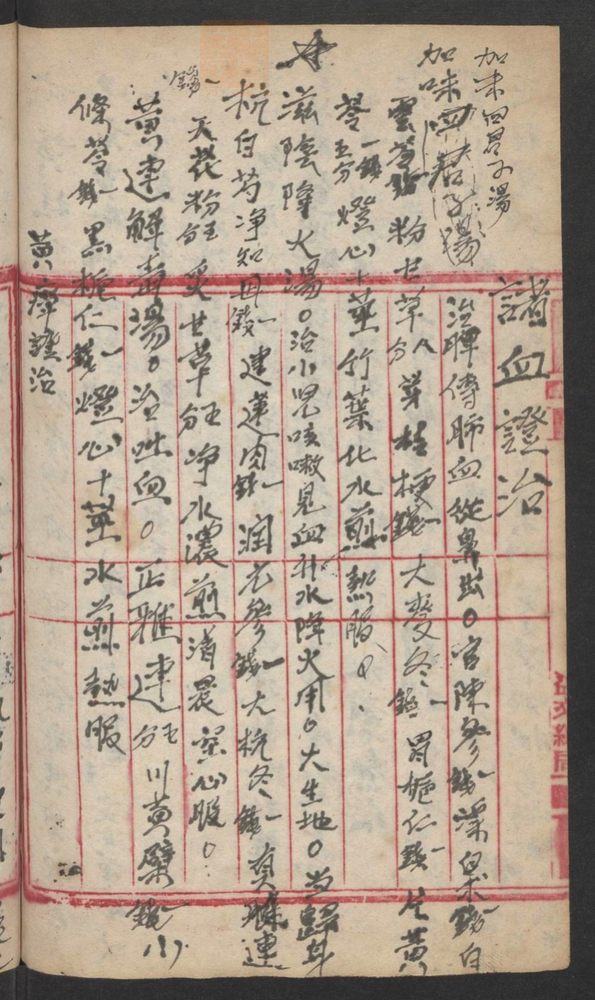 諸血證治
加味四君子湯
加味四君子湯
治脾傳肺血從鼻出。官陳參錢一潔泉錢白
雲苓粉甘草八分芽桔梗錢一大麥冬錢一習梔仁錢一片黃
芩一錢五分燈心十莖竹葉化水煎熱服。
滋陰降火湯。治小兒咳嗽見血升水降火用。大生地。当歸身
杭白芍净知母錢一建蓮肉錢一潤元參錢一大杭冬錢一真雅連
錢一天花粉五分炙甘草五分净水濃煎清晨空心服。
黃連解毒湯。治吐血。正雅連五分川黃檗錢一小
條芩錢一黑梔仁錢一燈心十莖水煎熱服
黃癉證治